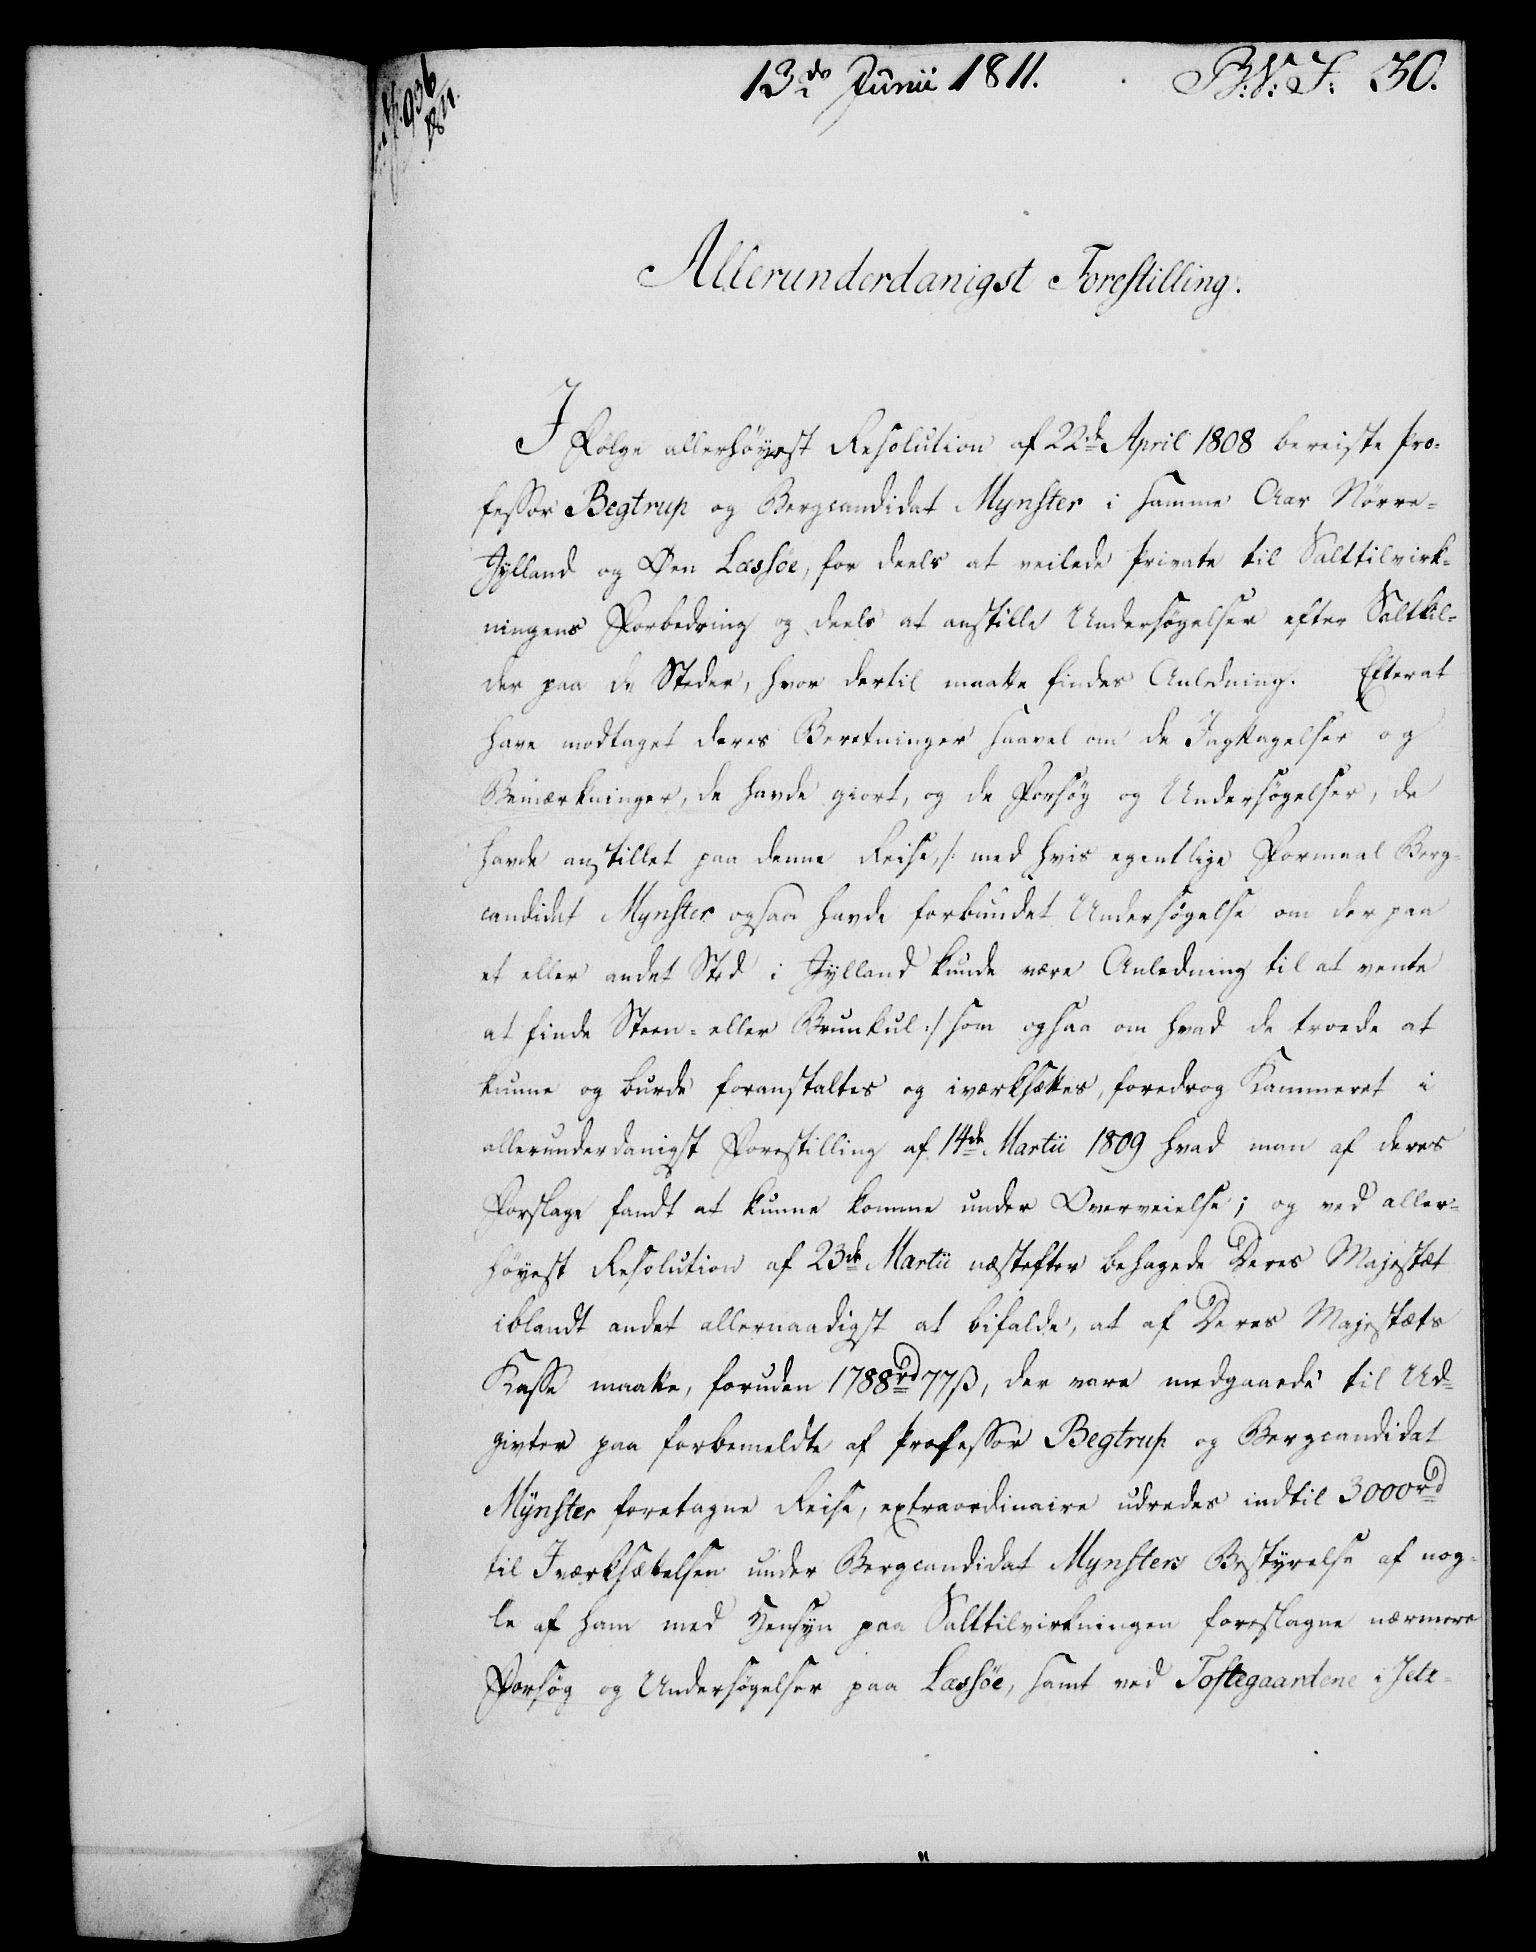 13de Junii 1811. B:V:J: 30.
936
1811.
Allerunderdanigst Forestilling.
I Følge allerhøyest Resolution af 22de April 1808 bereiste Pro-
fessor Begtrup og Bergcandidat Mynster i samme Aar Nørre-
Jylland og Øen Læssøe, for deels at veilede Private til Salttilvirk-
ningens Forbedring og deels at anstille Undersøgelser efter Saltkil-
der paa de Steder, hvor dertil maatte findes Anledning. Efterat
have modtaget deres Beretninger saavel om de Iagttagelser og
Bemærkninger, de havde giort, og de Forsøg og Undersøgelser, de
havde anstillet paa denne Reise, /: med hvis egentlige Formaal Berg-
candidat Mynster ogsaa havde forbundet Undersøgelse om der paa
et eller andet Sted i Jylland kunde være Anledning til at vente
at finde Steen- eller Bruunkul :/ som ogsaa om hvad de troede at
kunne og burde foranstaltes og iværksættes, foredrog Kammeret i
allerunderdanigst Forestilling af 14de Martii 1809 hvad man af deres
Forslage fandt at kunne komme under Overveielse; og ved aller-
høyest Resolution af 23de Martii næstefter behagede Deres Majestæt
iblandt andet allernaadigst at bifalde, at af Deres Majestæts
Kasse maatte, foruden 1788rd 77ß, der vare medgaaede til Ud-
givter paa forbemeldte af Professor Begtrup og Bergcandidat
Mÿnster foretagne Reise, extraordinaire udredes indtil 3000rd
til Iværksættelsen under Bergcandidat Mynsters Bestyrelse af nog-
le af ham med Hensyn paa Salttilvirkningen foreslagne nærmere
Forsøg og Undersøgelser paa Læssøe, samt ved Toftegaardene i Jetz-